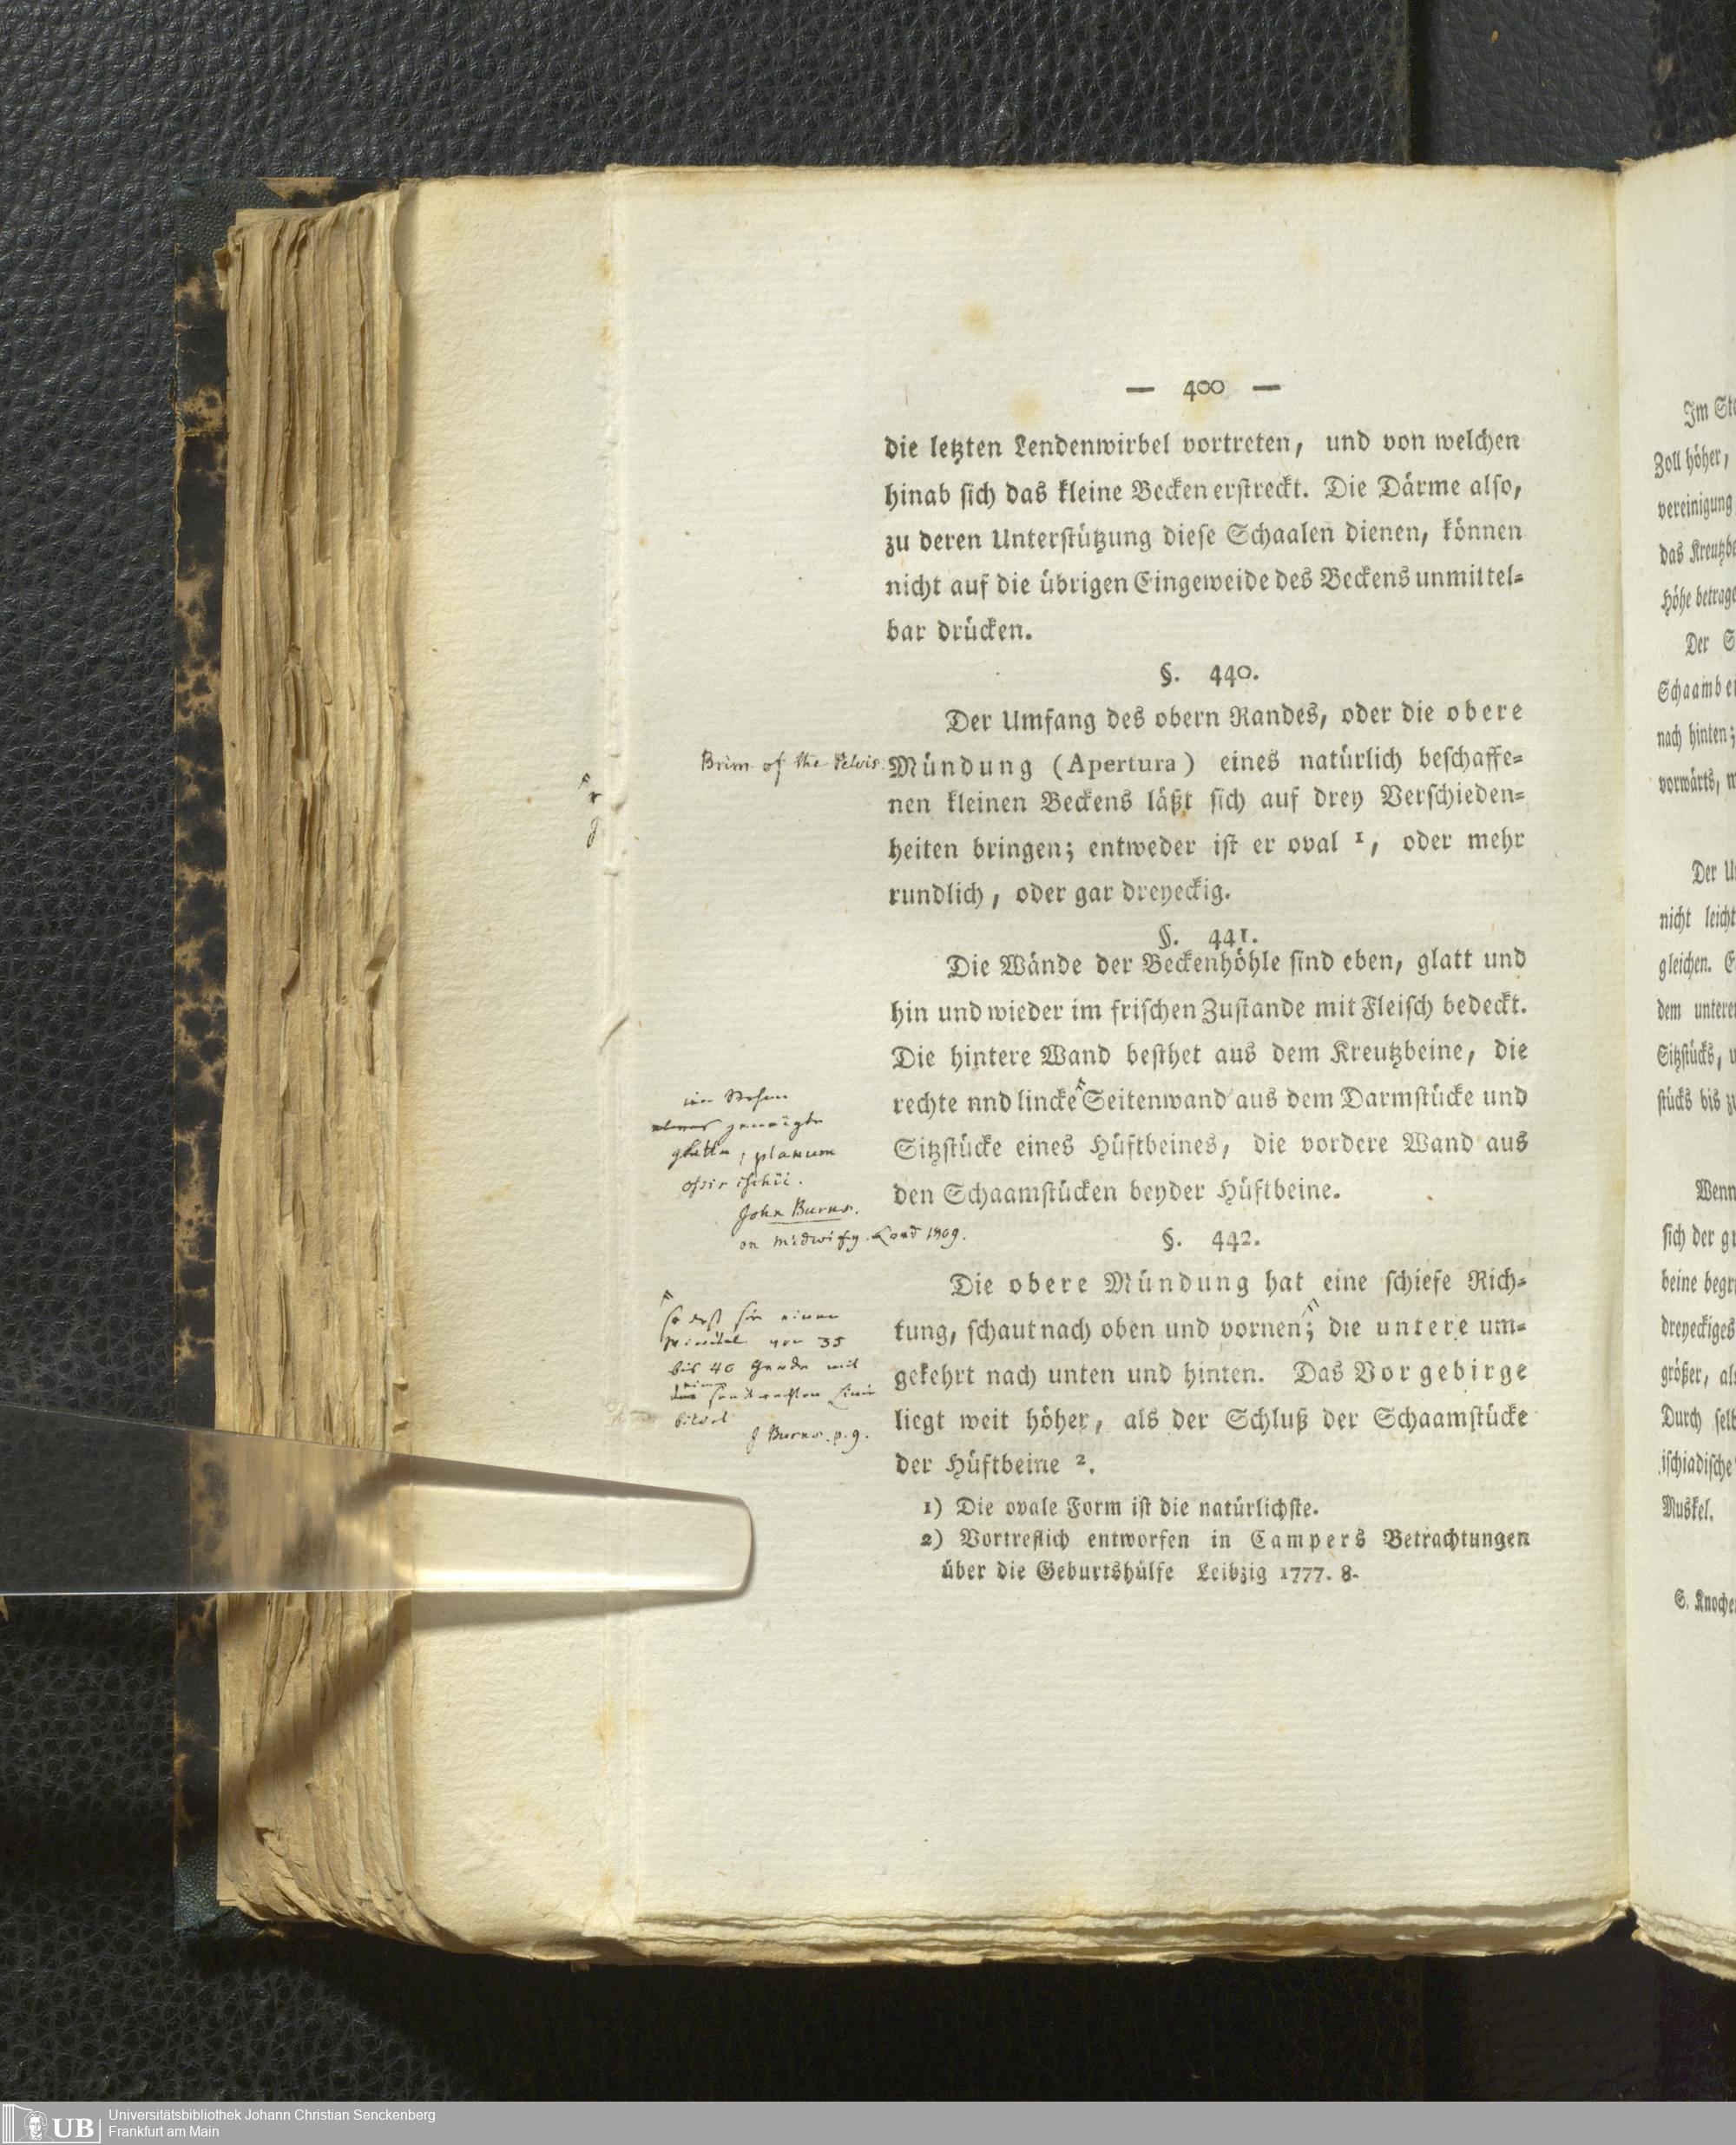 — 400 —
die letzten Lendenwirbel vortreten, und von welchen
hinab sich das kleine Becken erstreckt. Die Därme also,
zu deren Unterstützung diese Schaalen dienen, können
nicht auf die übrigen Eingeweide des Beckens unmittel-
bar drücken.
§. 440.
Der Umfang des obern Randes, oder die obere
Brim of the Pelvis.
Mündung (Apertura) eines natürlich beschaffe-
nen kleinen Beckens läßt sich auf drey Verschieden-
heiten bringen; entweder ist er oval 1, oder mehr
rundlich, oder gar dreyeckig.
§. 441.
Die Wände der Beckenhöhle sind eben, glatt und
hin und wieder im frischen Zustande mit Fleisch bedeckt.
Die hintere Wand besthet aus dem Kreutzbeine, die
rechte nnd lincke Seitenwand aus dem Darmstücke und
Sitzstücke eines Hüftbeines, die vordere Wand aus
den Schaamstücken beyder Hüftbeine.
geneigte
glatte, planum
ossis ischii.
John Burns.
on midwify. Lond 1809.
§. 442.
Die obere Mündung hat eine schiefe Rich-
tung, schaut nach oben und vornen; die untere um-
gekehrt nach unten und hinten. Das Vorgebirge
liegt weit höher, als der Schluß der Schaamstücke
der Hüftbeine 2.
so daß sie einen
Winckel von 35
bis 40 Grade mit
einer senkrechten Linie
bildet
J Burns. p. 9.
1) Die ovale Form ist die natürlichste.
2) Vortreflich entworfen in Campers Betrachtungen
über die Geburtshülfe Leibzig 1777. 8.
Im
Zoll höher,
vereinigung
das
Höhe
Der
nach hinten;
vorwärts,
Der
nicht
gleichen.
dem
Sitzstücks,
stücks bis
Wenn
sich der
beine
dreyeckiges
größer,
Durch
ischiadische
Muskel.
S.
UB
Universitätsbibliothek Johann Christian Senckenberg
Frankfurt am Main